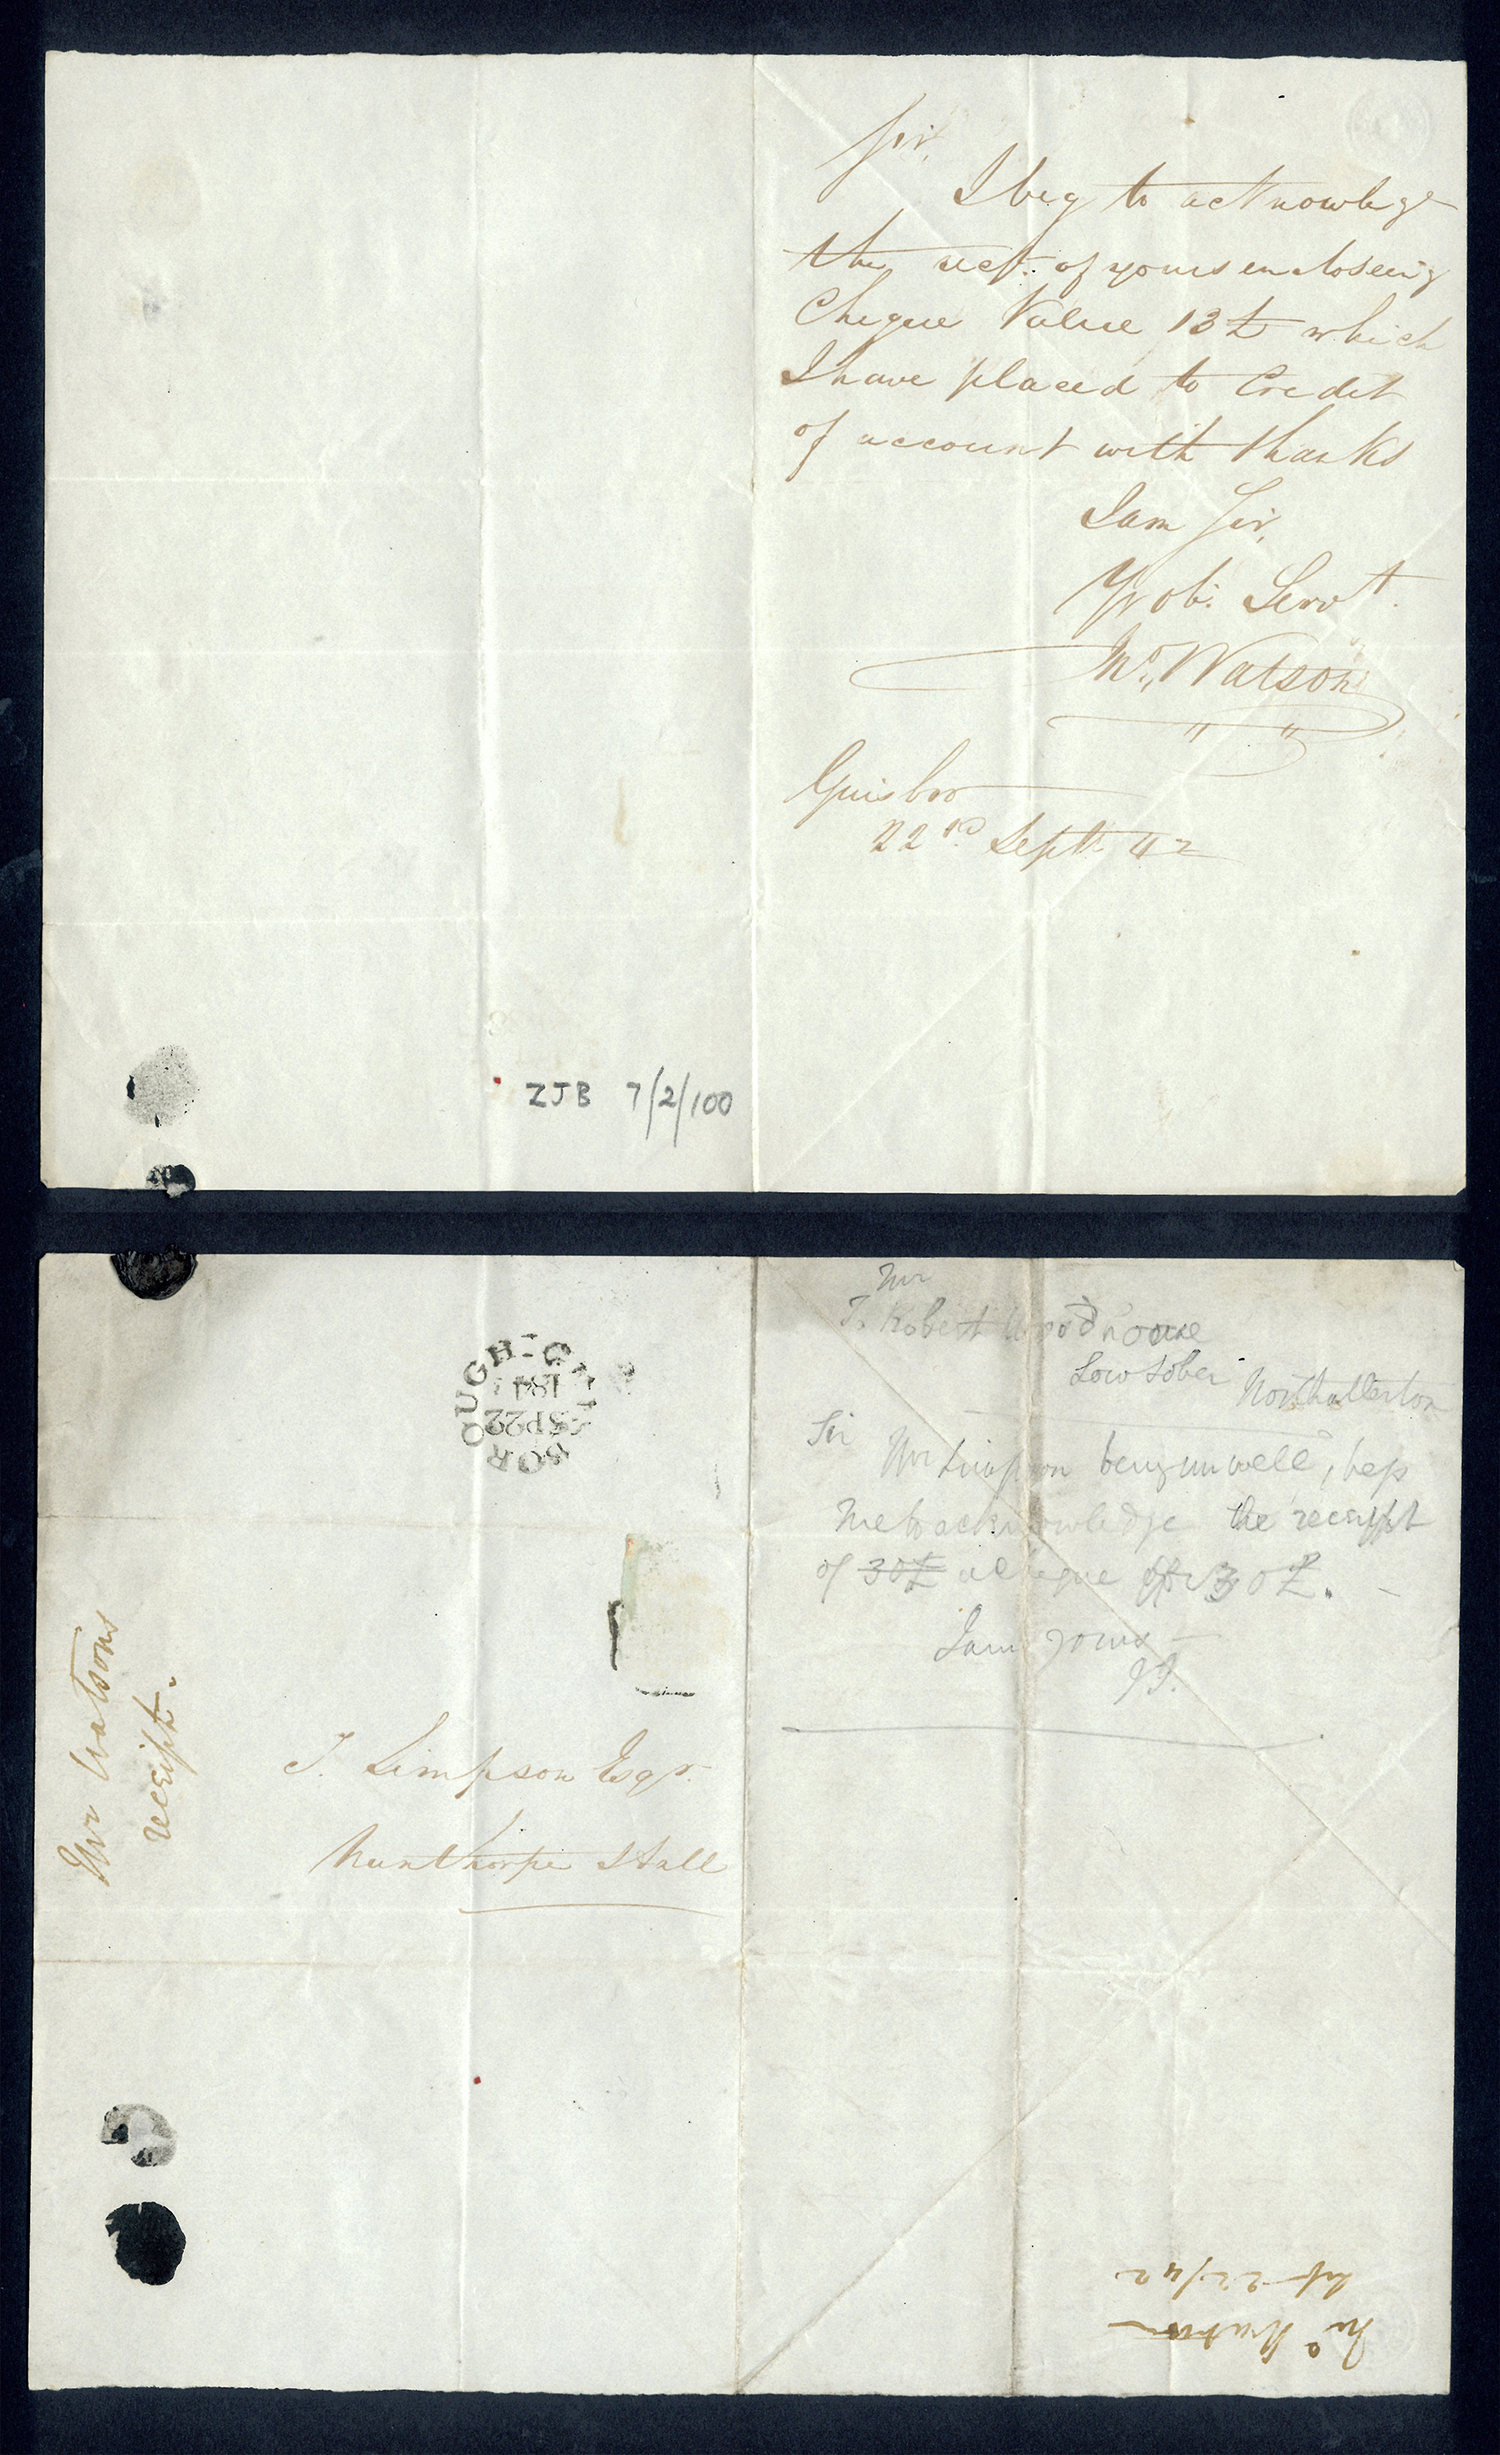 Sir,
I beg to acknowlege
the rect. of yours encloseing
Cheque Value 13£ which
I have placed to Credit
of account with thanks
I am Sir,
Yr ob: Servt.
Wm. Watson
Guisbro
22nd Septr 42
ZJB 7/2/100
GUISBOROUGH
SP22
184
Mr Watsons
receipt.
J. Simpson Esqr.
Nunthorpe Hall
Mr
T. Robert
Low Sober Northallerton
Sir
Mr Simpson being unwell, begs
me to acknowledge the receipt
of 30£ a cheque for 30£.
I am yours
Watson
Sept 22/42